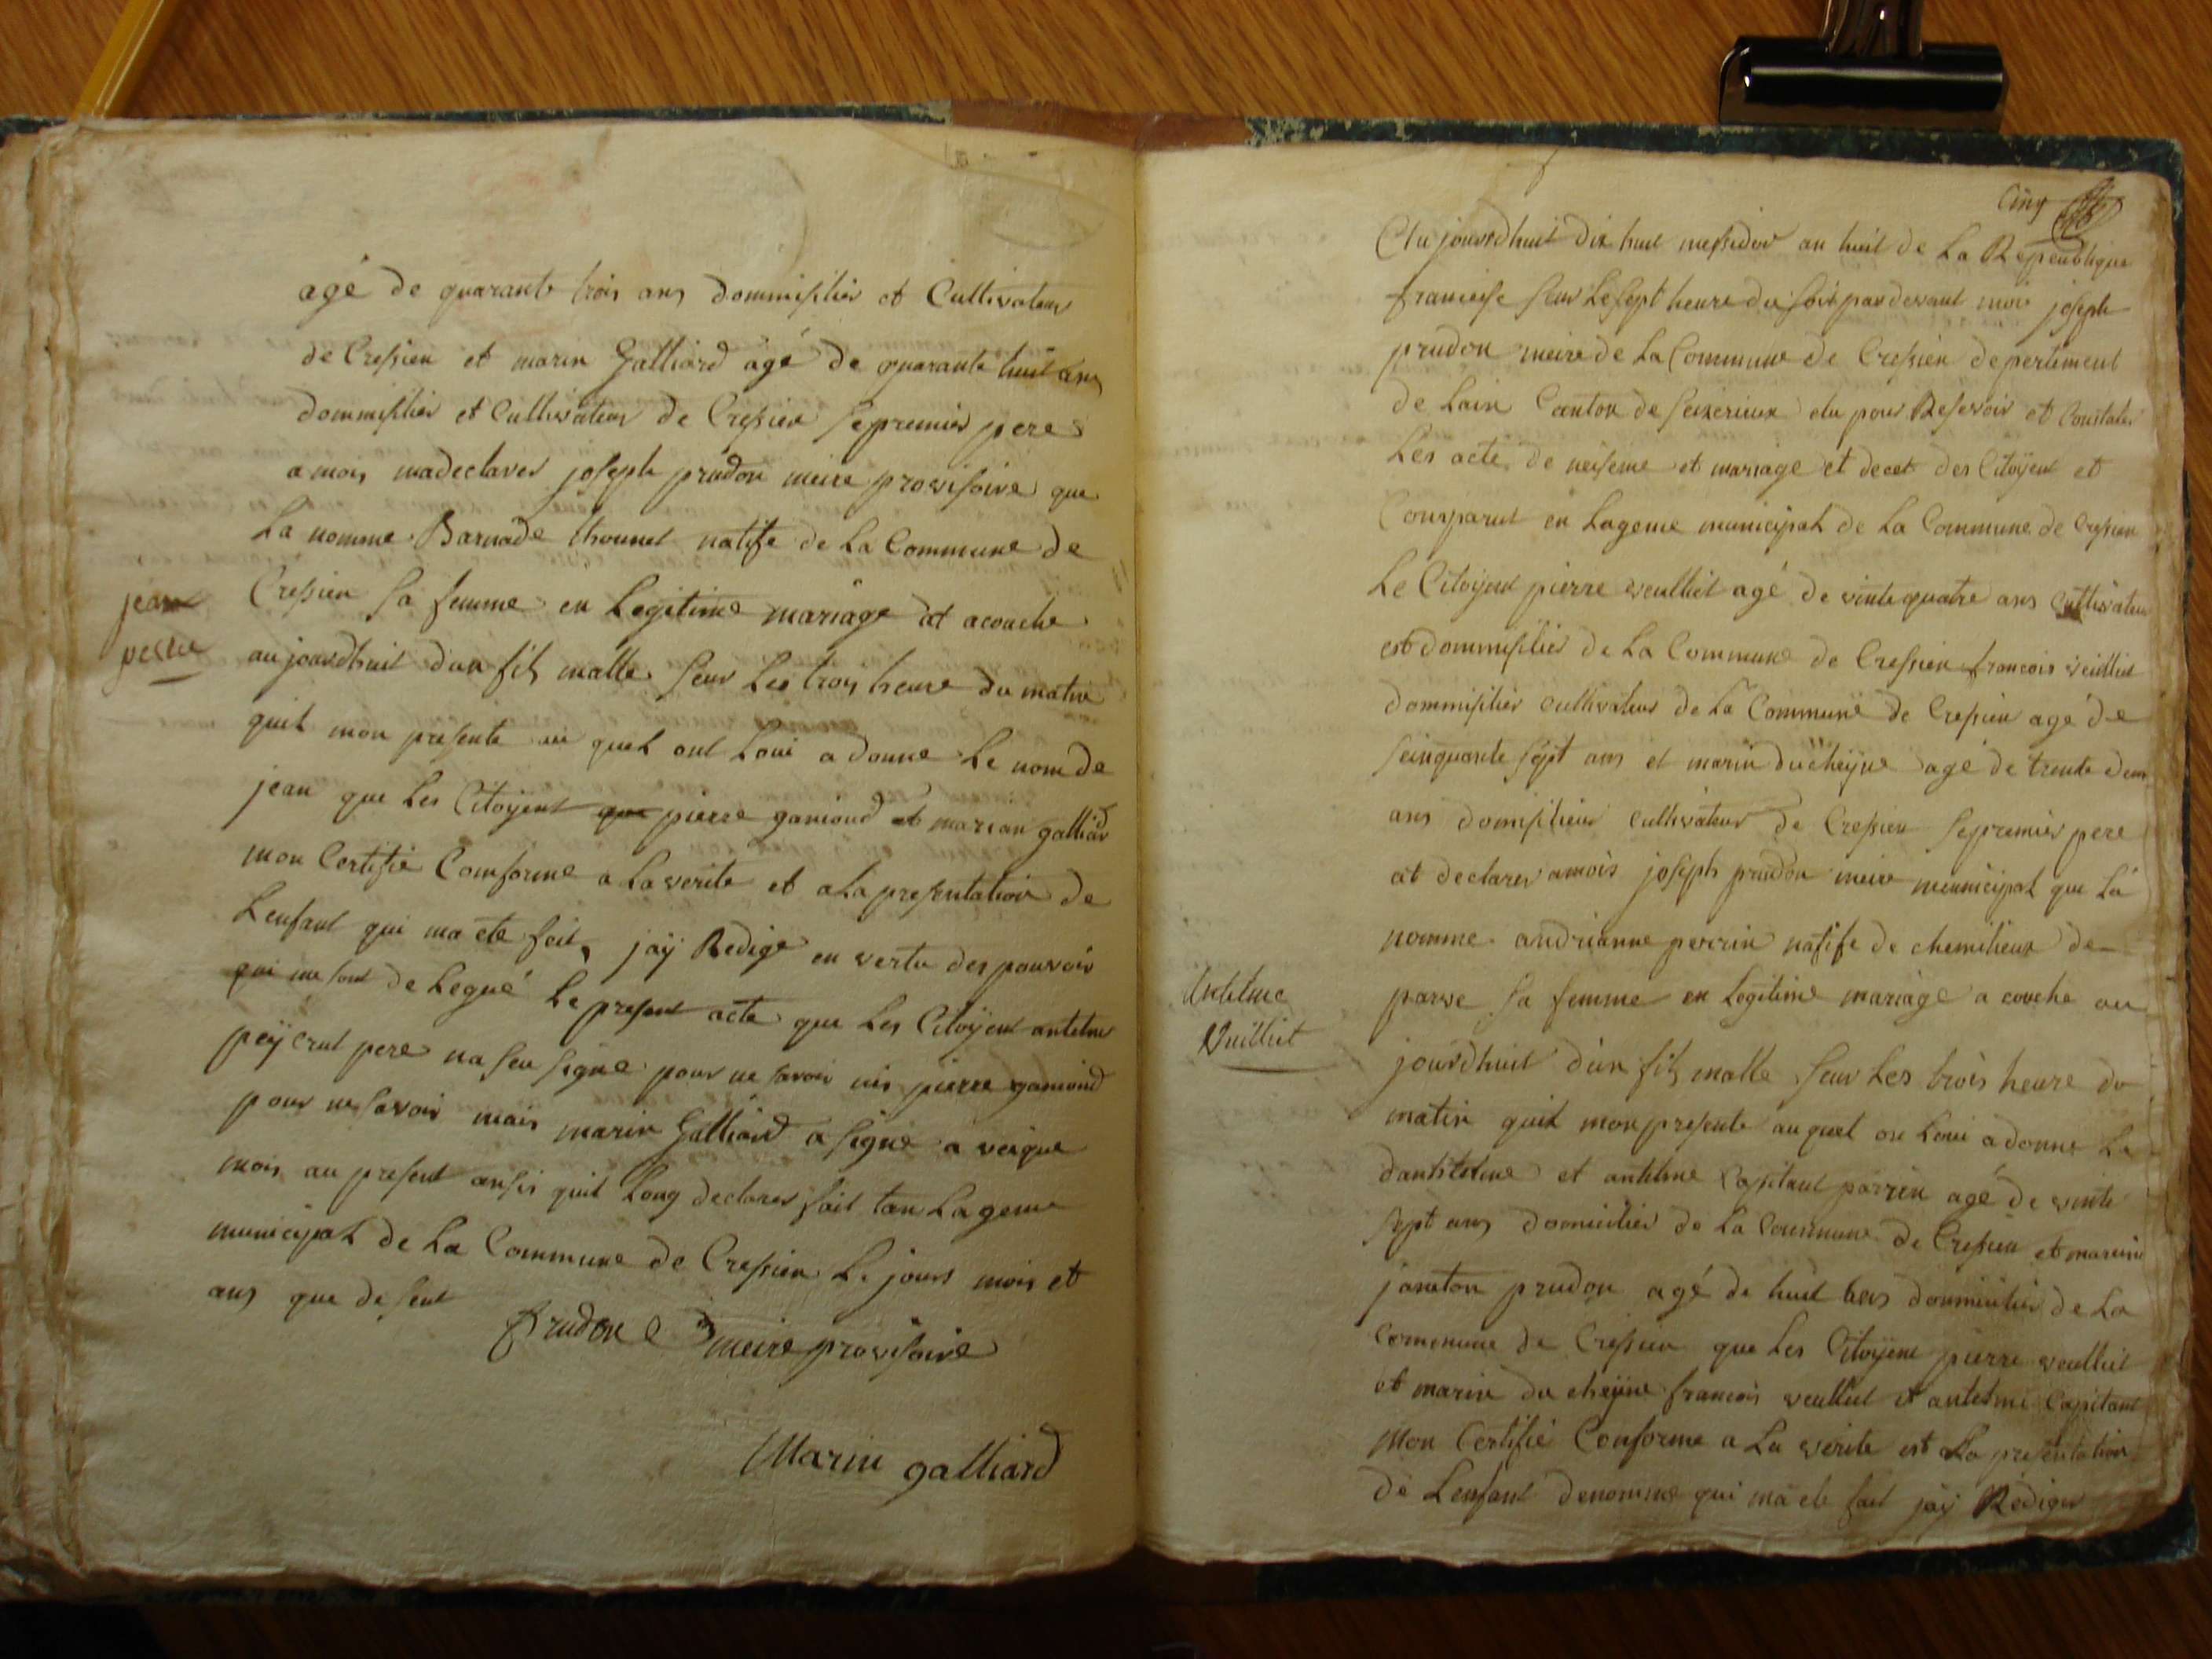 agé de quarante trois ans dommisilier et Cultivateur
de Cressien et marin Galliard agé de quarante huit ans
dommisilier et Cultivateur de Cressien Sepremier pere
a mois madeclarer joseph prudon meire provisoire que
La nomme Barnade thounet natife de La Commune de
Cressien Sa femme en Legitime mariage at acouche
jean
aujourdhuit dun fils malle Seur Les trois heure du matin
quil mon presente quel ont Loui a donne Le nom de
jean que Les Citoyent que pierre gamond et marian galliar
mon Certifié Comforme a Laverite et aLa presentation de
Lenfant qui ma ete fait jaÿ Redige en vertu des pouvoir
qui me sont de Legué Le present acte que Les Citoyent antelme
peycrut pere na seu Signe pour ne savoir nis pierre gamond
pour ne savoir mais marin Galliard a Signe a veique
mois au present ansis quil Long declarer fait tan Lageme
municipal de La Commune de Cressien Le jours mois et
ans que de seut
Prudon meire provisoire
Marin galliard
Cinq
Au jourdhuit dix huit messidor an huit de La Republique
francoise Seur Lesept heure du soir par devant mois joseph
prudon meire de La Commune de Cressien depertement
de Lain Canton de Seizerieux elu pour Resevoir et Constater
Les acte de neiseme et mariage et decet des Citoÿent et
Comparut en Lageme municipal de La Commune de Cressien
Le Citoÿent pierre veulliet agé de vinte quatre ans Cultivateur
est dommisilier de La Commune de Cressien francois veulliet
dommisilier cultivateur de La Commune de Cressien agé de
seinquante sept ans et marin ducheÿne agé de trente deux
ans domisilieur cultivateur de Cressien Sepremier pere
at declarer amois joseph prudon meire meunicipal que La
nomme andrianne perrin natife de chemilieux de
Antelme
Vuilliet
parve Sa femme en Legitime mariage a couche au
jourdhuit dun fils malle Seur Les trois heure du
matin quil mon presente au quel on Loui a donne Le
dantetelme et antelme Capitant parrin agé de vinte
sept ans domicilier de La Commune de Cressien et mareine
janeton prudon agé de huit ans dommicilier de La
Commune de Cressien que Les Citoÿent pierre veulliet
et marin du cheÿne francois veulliet et antelme Capitant
Mon Certifié Conforme a La verite est aLa presentation
de Lenfant denomme qui ma ete fait jaÿ Rediger